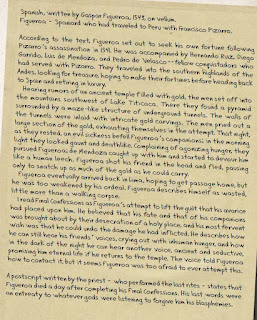 Spanish, written by Gaspar Figueroa, 1543, on vellum.
Figueroa - Spaniard who had traveled to Peru with Francisco Pizarro.
According to the text, Figueroa set out to seek his own fortune following
Pizarro's assassination in 1541. He was accompanied by Hernando Ruiz, Diego
Garrido, Luis de Mendoza, and Pedro de Velasco - fellow conquistadors who
had served with Pizarro. They traveled into the southern highlands of the
Andes, looking for treasure, hoping to make their fortunes before heading back
to Spain and retiring in luxury.
Hearing rumors of an ancient temple filled with gold, the men set off into
the mountains southwest of Lake Titicaca. There they found a pyramid
surrounded by a maze-like structure of underground tunnels. The walls of
the tunnels were inlaid with intricate gold carvings. The men pried out a
large section of the gold, exhausting themselves in the attempt. That night,
as they rested, an evil sickness befell Figueroa's companions. In the morning
light they looked gaunt and deathlike. Complaining of agonizing hunger, they
pursued Figueroa; de Mendoza caught up with him and started to devour him
like a human leech. Figueroa shot his friend in the head and fled, pausing
only to snatch up as much of the gold as he could carry.
Figueroa eventually arrived back in Lima, hoping to get passage home, but
he was too weakened by his ordeal. Figueroa describes himself as wasted,
little more than a walking corpse.
I read Final Confessions as Figueroa's attempt to lift the guilt that his avarice
had placed upon him. He believed that his fate and that of his companions
was brought about by their desecration of a holy place, and his most fervent
wish was that he could undo the damage he had inflicted. He describes how
he can still hear his friends' voices, crying out with inhuman hunger, and how
in the dark of the night he can hear another voice, ancient and seductive,
promising him eternal life if he returns to the temple. The voice told Figueroa
how to contact it but it seems Figueroa was too afraid to ever attempt this.
A postscript written by the priest - who performed the last rites - states that
Figueroa died a day after completing his Final Confessions. His last words were
an entreaty to whatever gods were listening to forgive him his blasphemies.